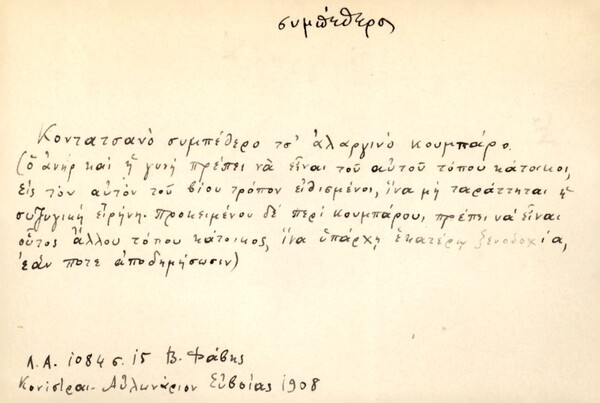 συμπέθερος
Κοντατσανὸ συμπέθερο τσ' ἀλαργινὸ κουμπάρο.
(ὁ ἀνὴρ καὶ ἡ γυνὴ πρέπει νὰ εἶναι τοῦ αὐτοῦ τόπου κάτοικοι,
εἰς τὸν αὐτὸν τοῦ βίου τρόπον εἰθισμένοι, ἵνα μὴ ταράττηται ἡ
συζυγικὴ εἰρήνη. Προκειμένου δὲ περὶ κουμπάρου, πρέπει νὰ εἶναι
οὗτος ἄλλου τόπου κάτοικος, ἵνα ὑπάρχῃ ἑκατέρῳ ξενοδοχία,
ἐάν ποτε ἀποδημήσωσιν)
Λ.Α. 1084 σ. 15 Β. Φάβης
Κονίστραι - Αὐλωνάριον Εὐβοίας 1908